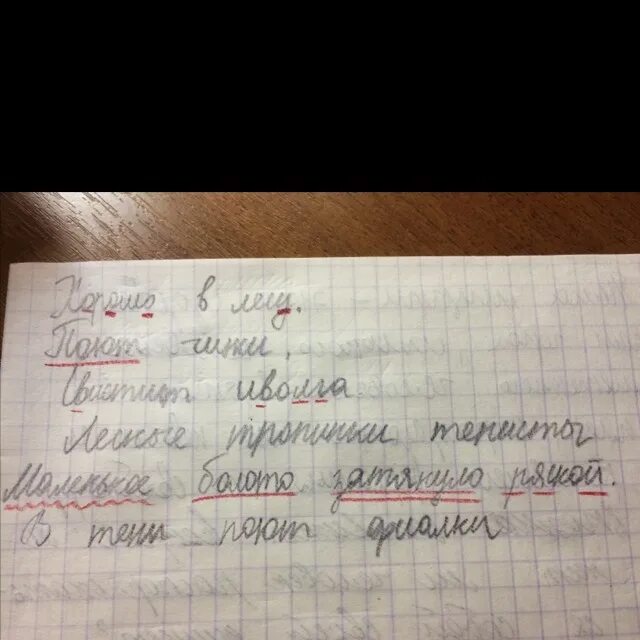 Хорошо в лесу.
Поют чижи.
Свистит иволга
Лесные тропинки тенисты
Маленькое балото затянуло ряской.
В тени поют фиалки